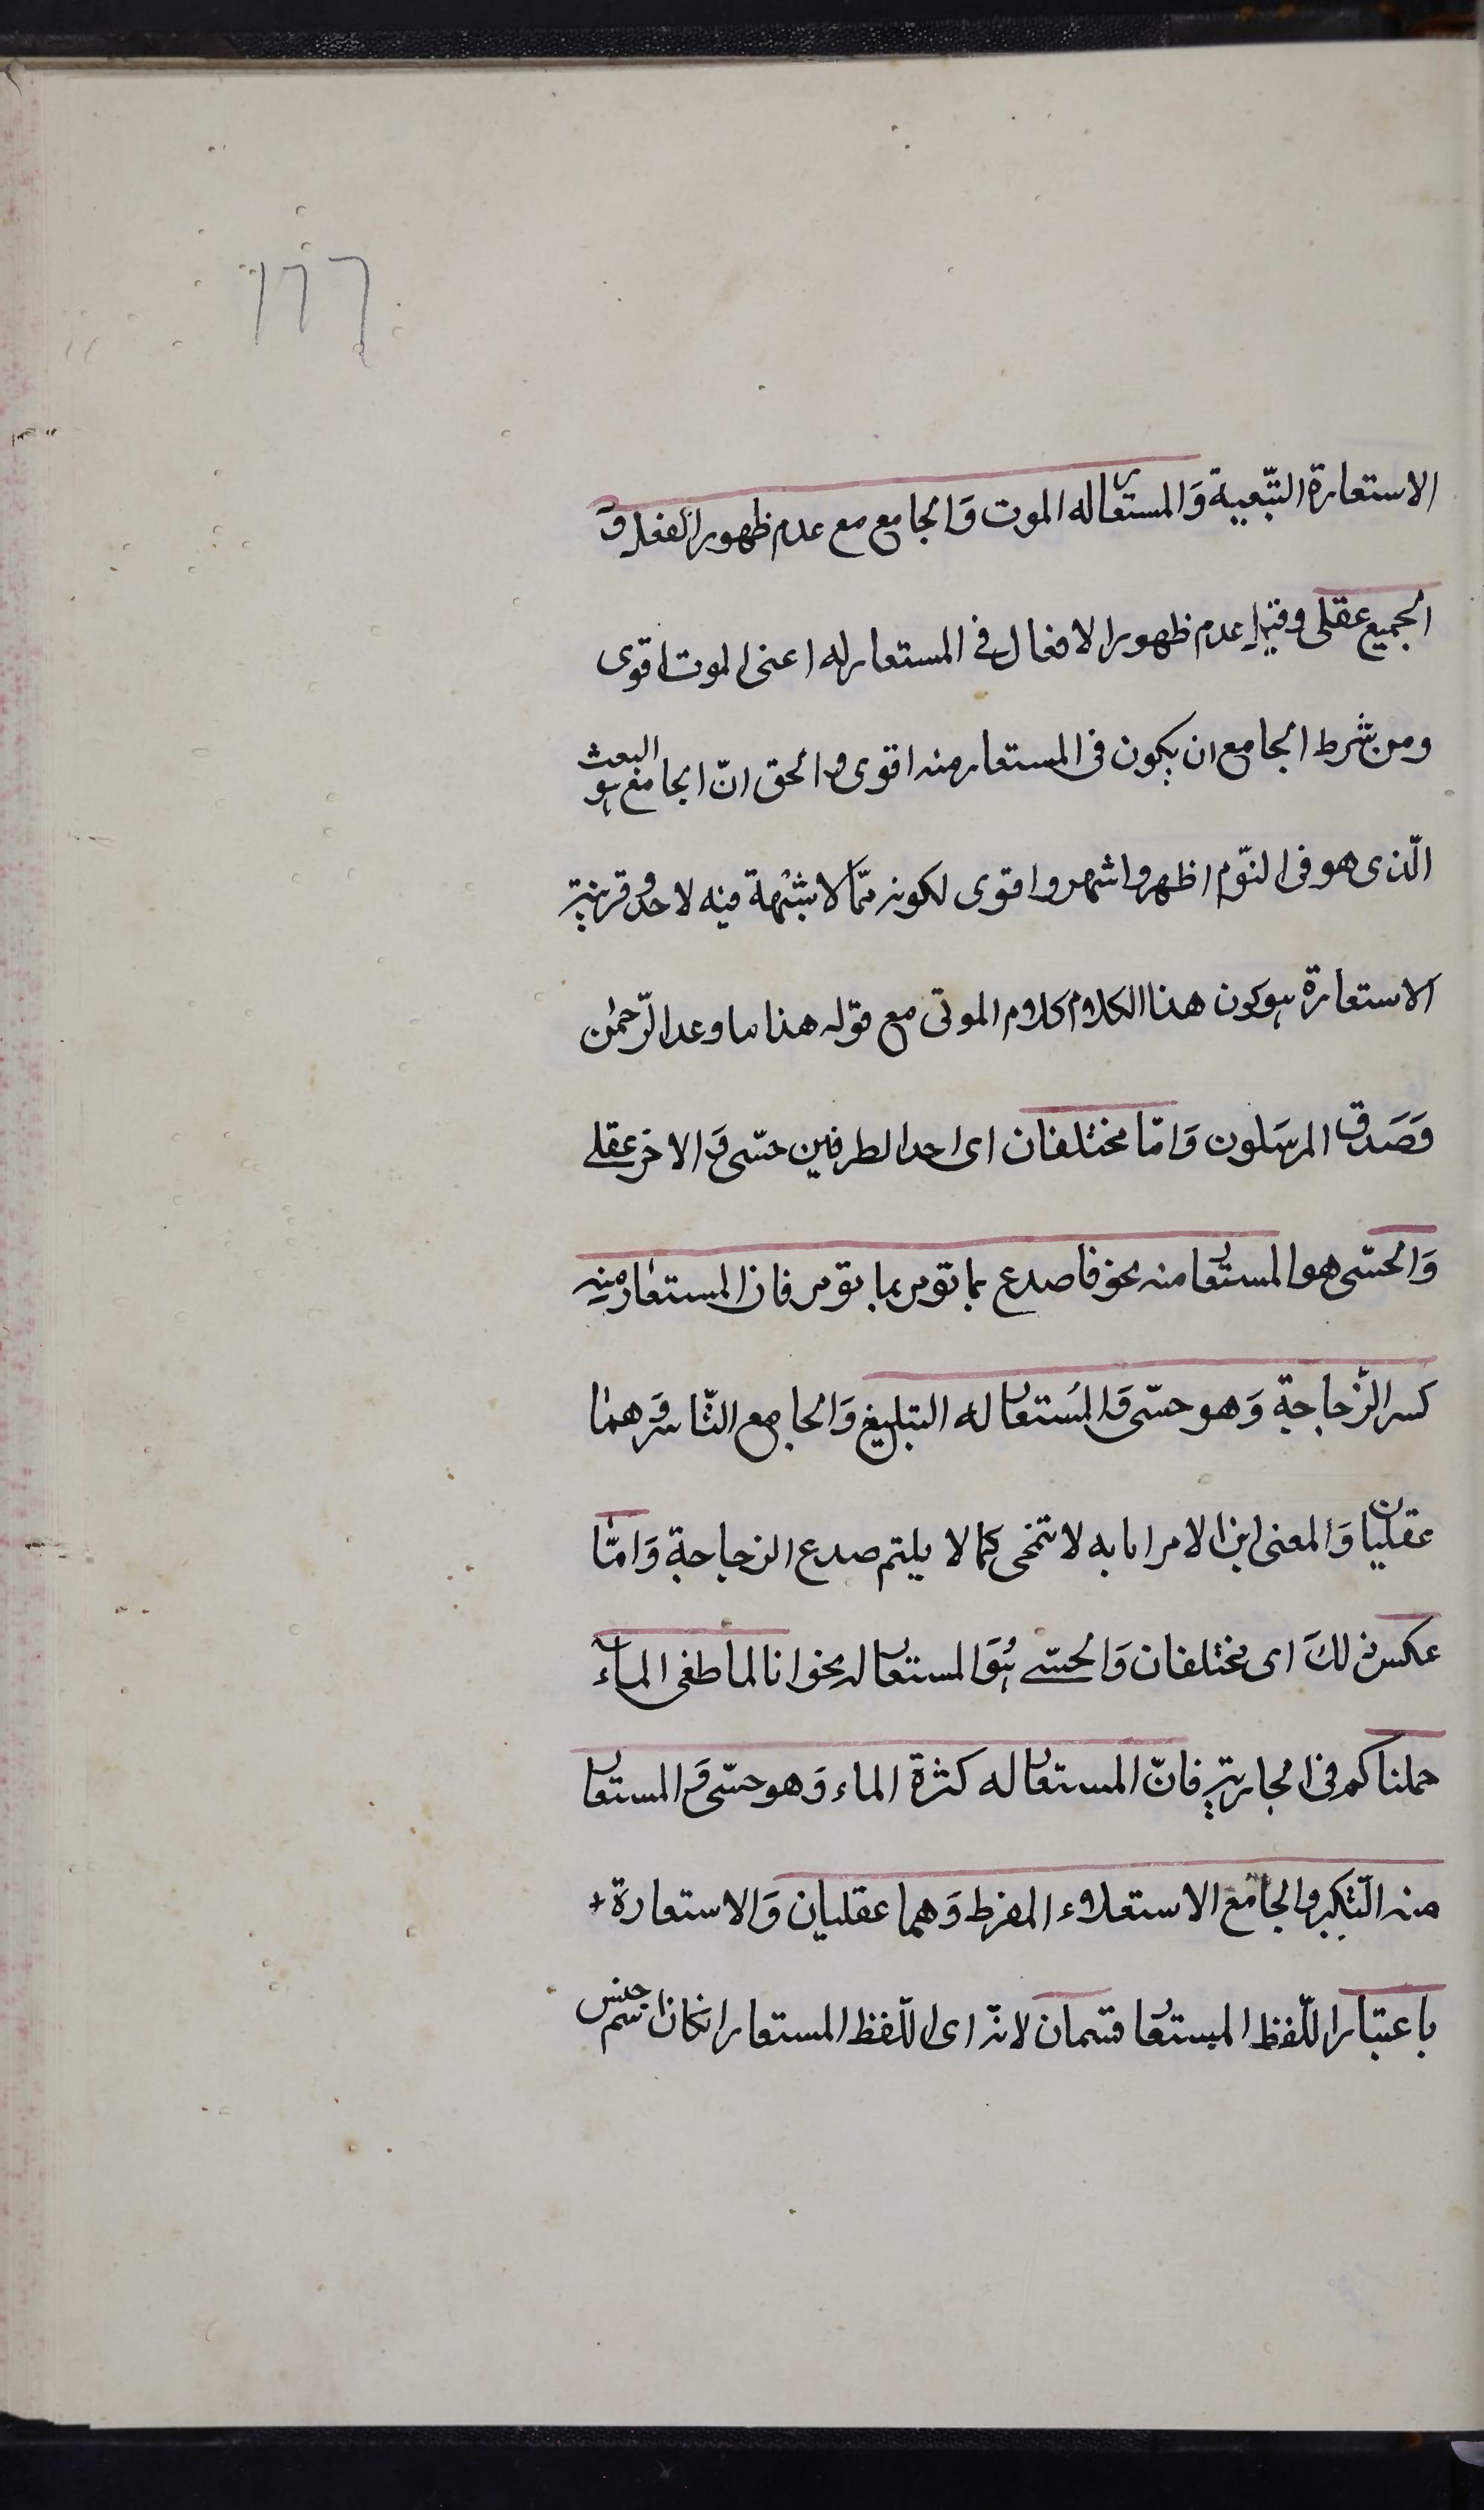 ١٦٦
الاستعارة التّبعية وَالمستعار له الموت وَالجامع مع عدم ظهور الفعل وَ
الجميع عقلى وقيل عدم ظهور الافعال فى المستعار له اعنى الموت اقوى
ومن شرط الجامع ان يكون فى المستعار منه اقوى و الحق انّ الجامع هو البعث
الّذى هو فى النّوم اظهر واشهر واقوى لكونه ممّا لا شبْهة فيه لاحد و قرينة
الاستعارة هو كون هذا الكلام كلام الموتى مع قوله هذا ما وعد الرّحمٰن
وَصَدَق المرسَلون وَامّا مختلفان اى احد الطرفين حسّى وَ الاخر عقلے
وَالحسّى هو المستعار منه نحو فاصدع بما تؤمر بما تؤمر فان المستعار منه
كسر الزّجاجة وَهو حسّى وَالمُستعار له التبليغ وَالجامع التّاثير وَهمٰا
عقليان وَالمعنى ابن الامر ابانه لا تنمحى كما لا يلتم صدع الزجاجة وَامّا
عكس ذلكَ اى مختلفان وَالحسّے هُوَ المستعار له نحو انا لما طغى الماء
حملناكم فى الجارية فانّ المستعار له كثرة الماء وَهو حسّى وَ المستعار
منه التّكبر و الجامع الاستعلاء المفرط وَهما عقليان وَالاستعارة +
باعتبار اللّفظ المستعار قسمان لانّه اى اللّفظ المستعار انكان اسم جنس